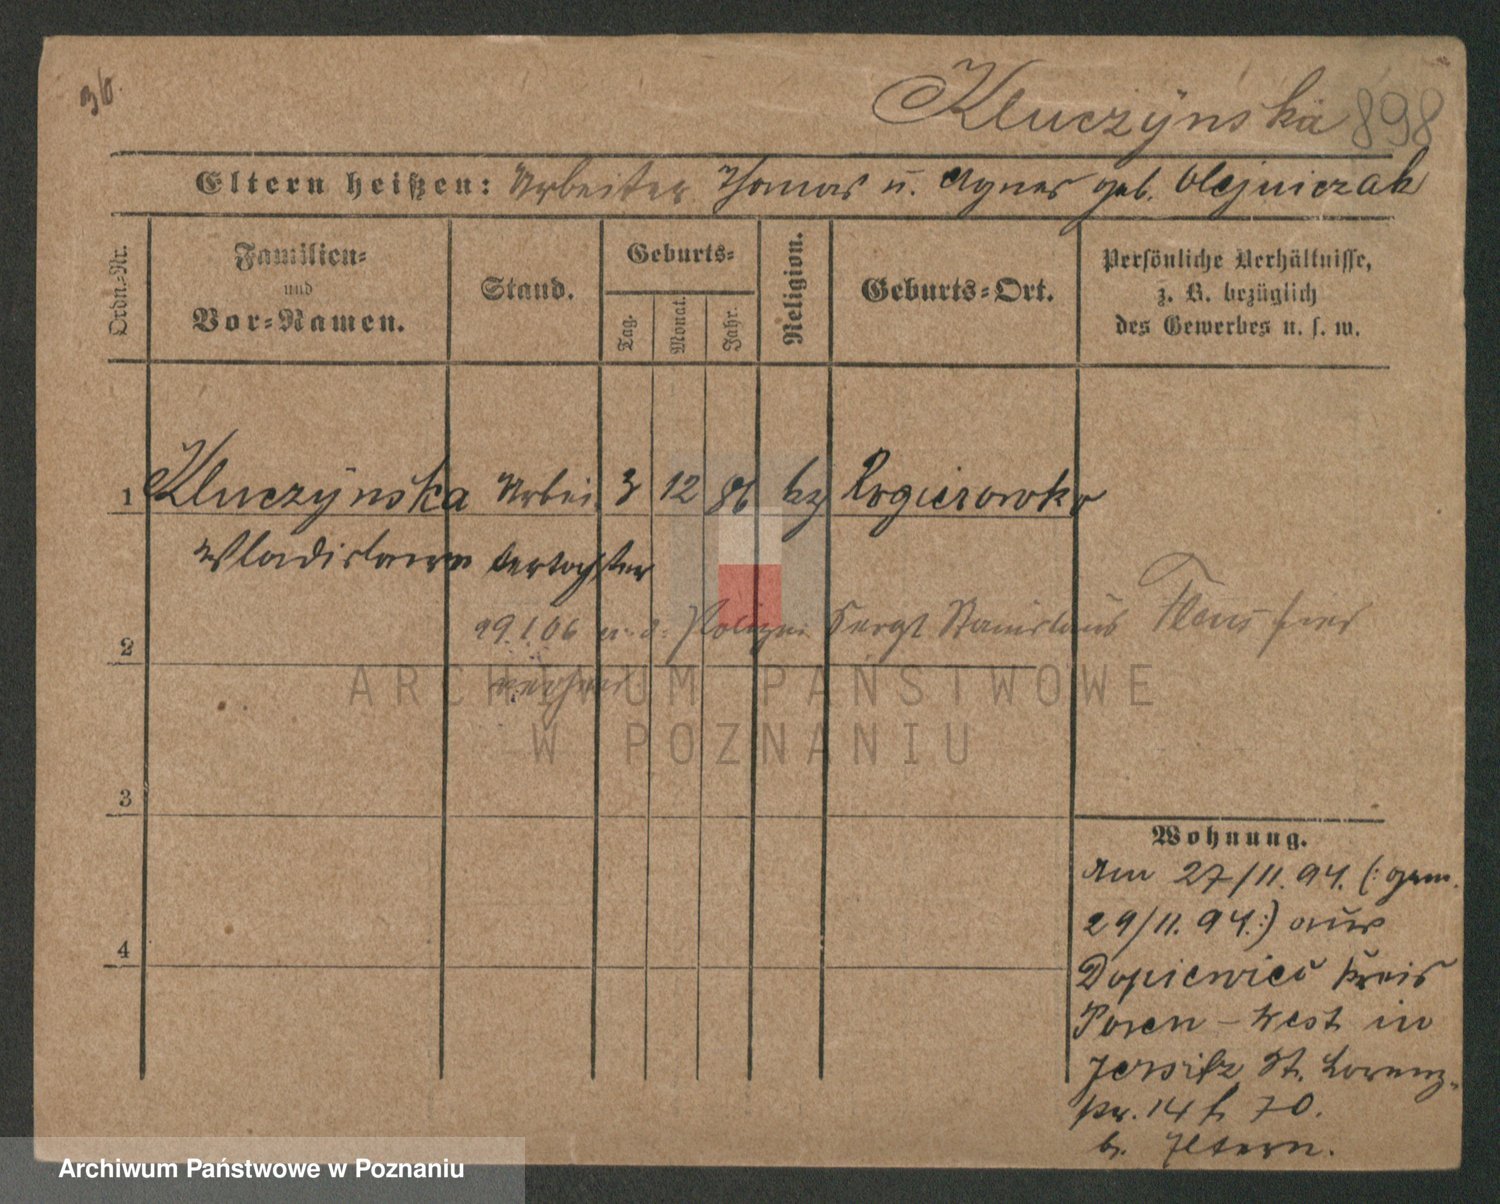 36.
Kluczÿnska 898
Eltern heißen: Arbeiter Thomas u. Agnes geb. Olejniczak
Ordn.-Nr.
Familien-
und
Vor-Namen.
Stand.
Geburts-
Tag.
Monat.
Jahr.
Religion.
Geburts-Ort.
Persönliche Verhältnisse,
z. B. bezüglich
des Gewerbes u. s. w.
1 Kluczÿnska Arbei 3 12 86 Rogierowko
Wladislawa tertochter
2 29.1.06 m. d. Polizei Sergt Stanislaus hier
3
4
Wohnung.
Am 27/11.94. (: gem.
29/11. 94.:) aus
Dopiewiec Kreis
Posen-West in
Jersitz St. Lorenz-
str. 14 f. 70.
b. Eltern.
ARCHIWUM PAŃSTWOWE
W POZNANIU
Archiwum Państwowe w Poznaniu